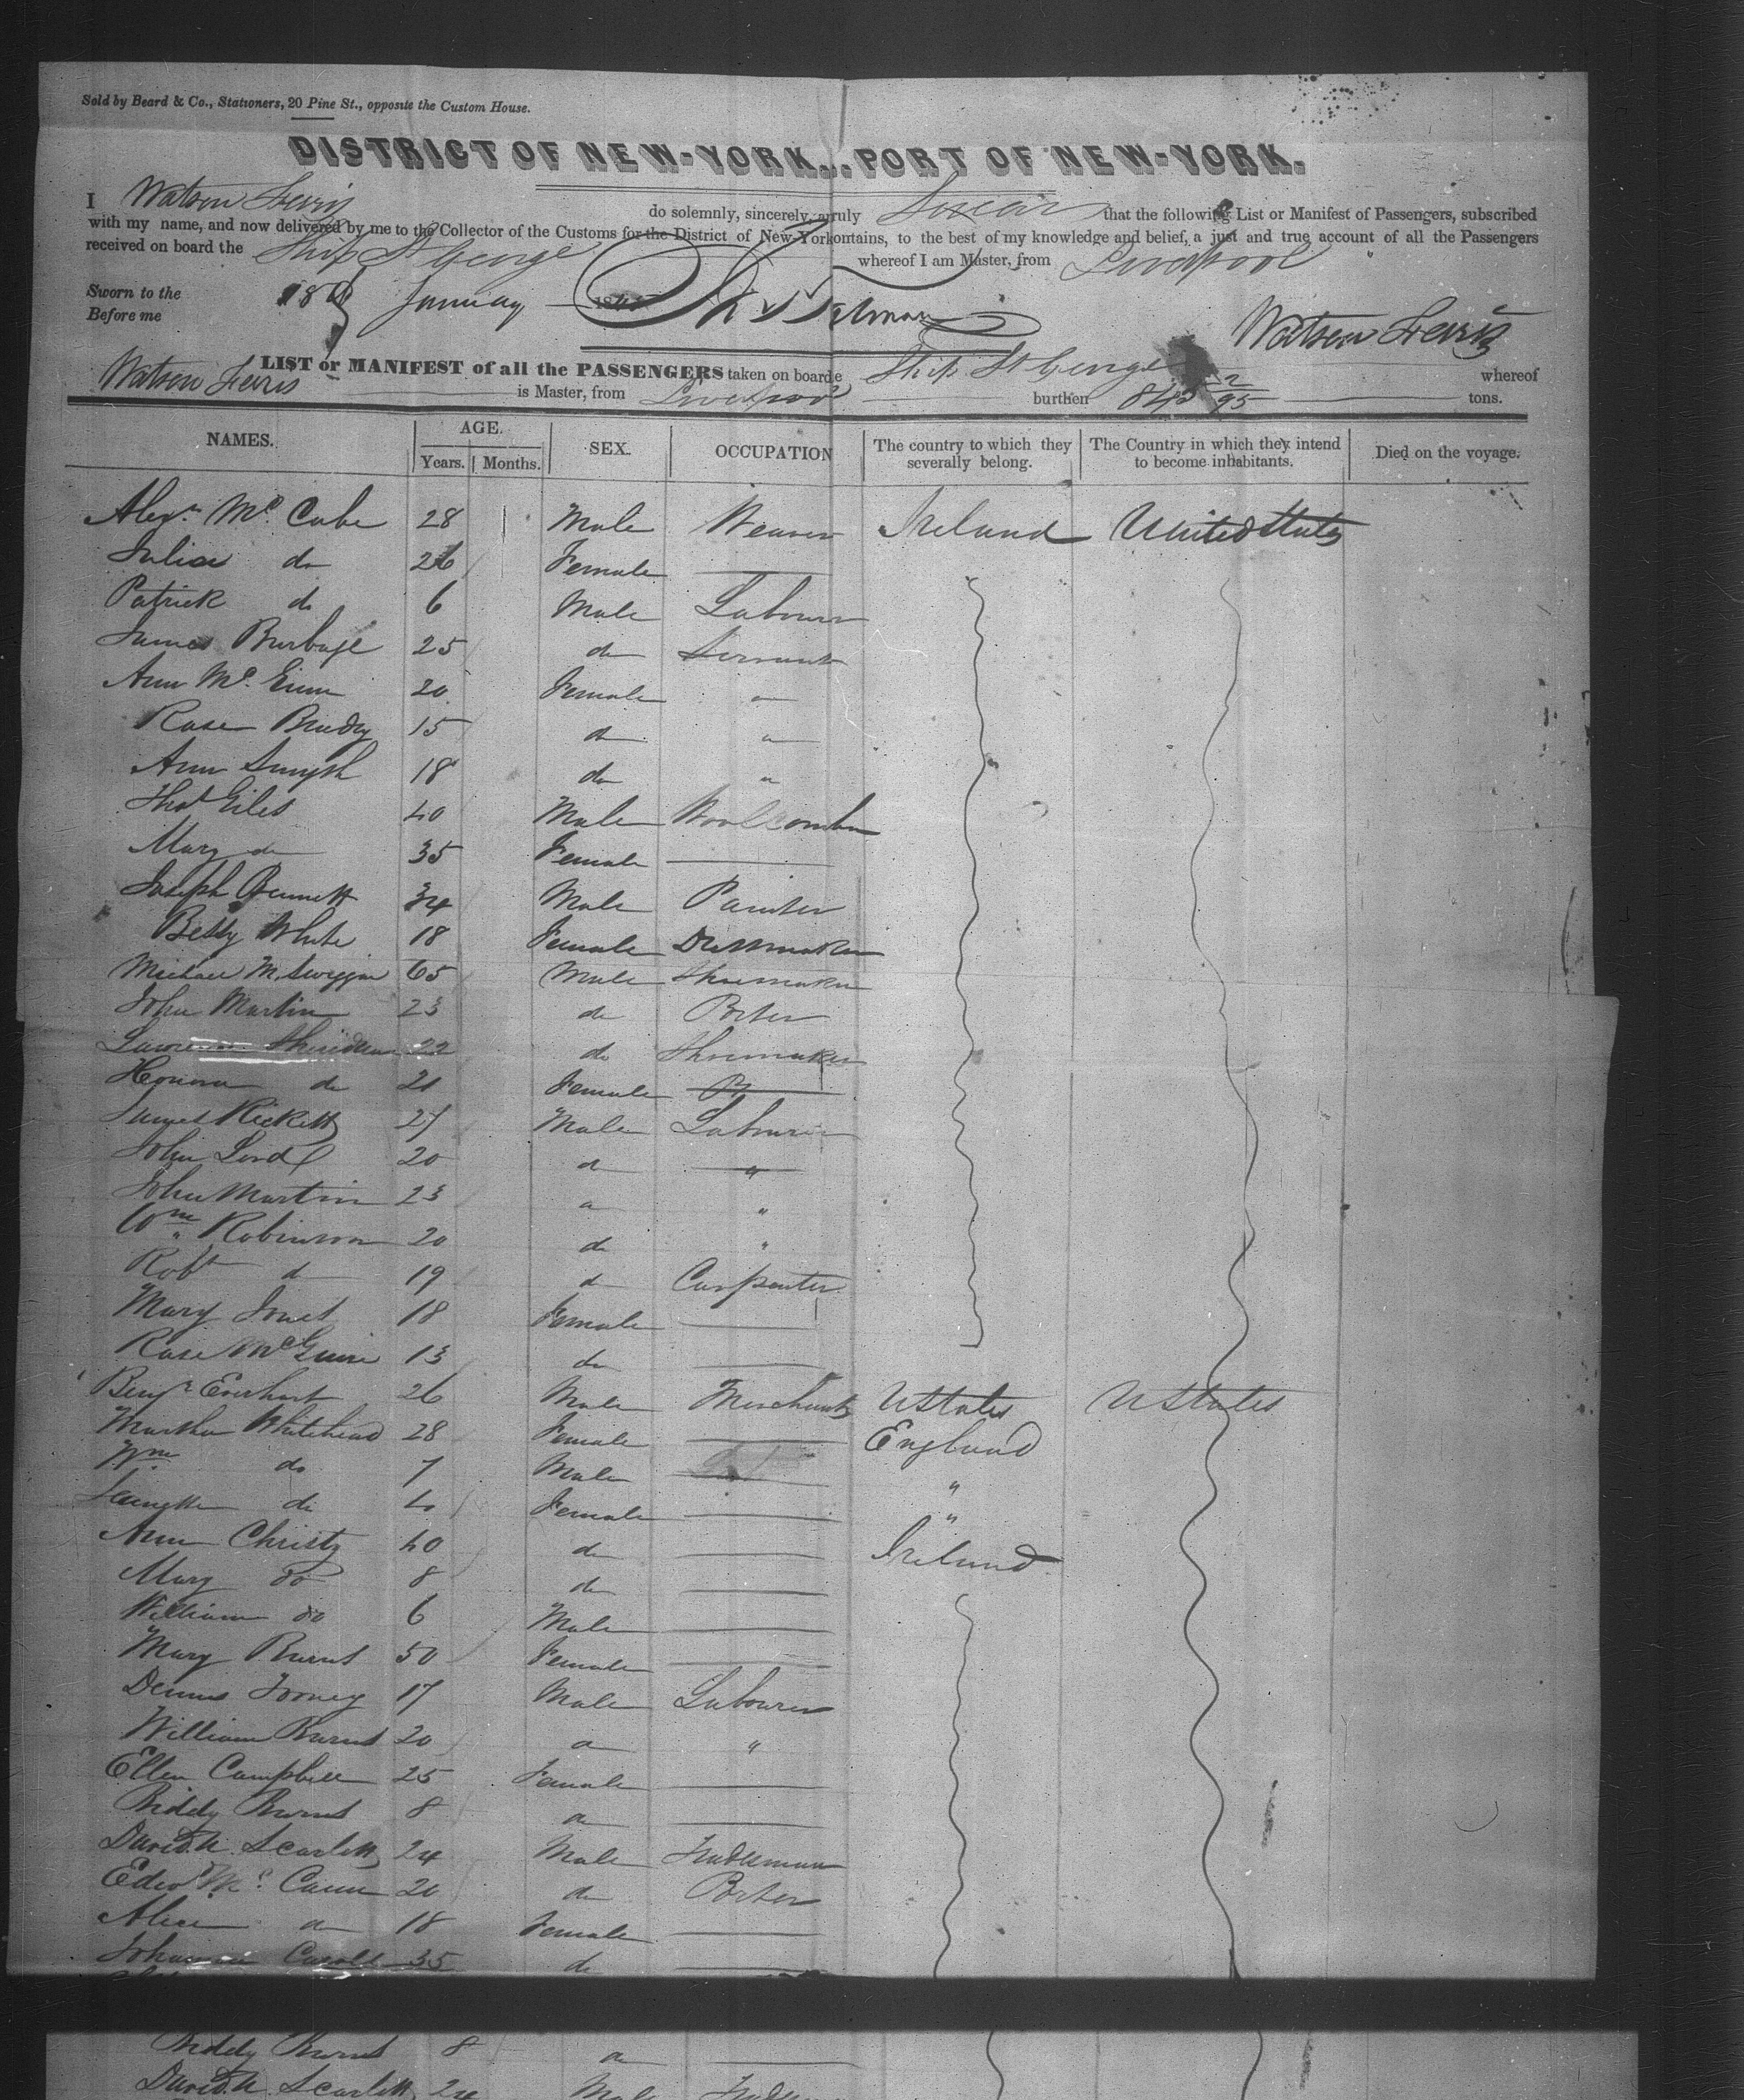 Sold by Beard & Co., Stationers, 20 Pine St., opposite the Custom House.
DISTRICT OF NEW-YORK...PORT OF NEW-YORK.
I Watson Ferris do solemnly, sincerely, truly swear that the following List or Manifest of Passengers, subscribed
with my name, and now delivered by me to the Collector of the Customs for the District of New-York ontains, to the best of my knowledge and belief, a just and true account of all the Passengers
received on board the Ship St George whereof I am Master, from Liverpool
Sworn to the 18 January 184
Before me Watson Ferris
LIST or MANIFEST of all the PASSENGERS taken on board e Ship St George whereof
Watson Ferris is Master, from Liverpool burthen 845 2/95 tons.
NAMES. AGE. Years. Months. SEX. OCCUPATION The country to which they severally belong. The Country in which they intend to become inhabitants. Died on the voyage.
Alexr Mc Cabe 28 Male Weaver Ireland United States
Julia do 26 Female
Patrick do 6 Male Labourer
James Burbage 25 do Servant
Ann Mc 20 Female "
Rose Brady 15 do "
Ann Smyth 18 do "
Thos Giles 40 Male Woolcomber
Mary do 35 Female
Joseph Bennett 34 Male Painter
Betty White 18 Female Dressmaker
Michael 65 Male Shoemaker
John Martin 23 do Porter
Lawrence Sheridan 22 do Shoemaker
Honora do 21 Female
James Ricketts 27 Male Labourer
John Lord 20 do "
John Martin 23 do "
Wm Robinson 20 do "
Robt do 19 do Carpenter
Mary Jones 18 Female
Rose McGuire 13 do
Benjn Everhart 26 Male Merchant U States U States
Martha Whitehead 28 Female England
Wm do 7 Male "
do 4 Female "
Ann Christy 40 do Ireland
Mary do 8 do
William do 6 Male
Mary Burns 50 Female
Dennis Tooney 17 Male Labourer
William Burns 20 do "
Ellen Campbell 25 Female
Biddy Burns 8 do
David H. Scarlett 24 Male Tradesman
Edwd Mc Cann 20 do Porter
Alice do 18 Female
Johanna Caroll 35 do
Biddy Burns 8 do
David H. Scarlett 24 Male